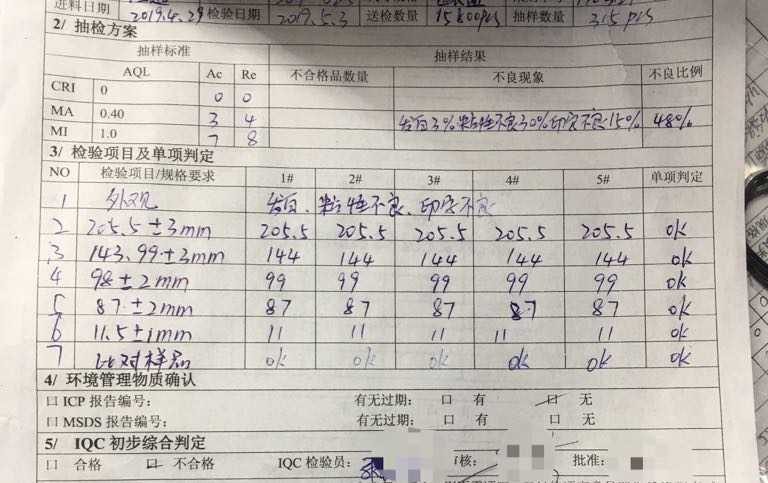 进料日期 2019.4.29 检验日期 2019.5.3 送检数量 15800pcs 抽样数量 315pcs
2/ 抽检方案
抽样标准 抽样结果
AQL Ac Re 不合格品数量 不良现象 不良比例
CRI 0 0 0
MA 0.40 3 4 发白3% 粘性不良30% 印字不良15% 48%
MI 1.0 7 8
3/ 检验项目及单项判定
NO 检验项目/规格要求 1# 2# 3# 4# 5# 单项判定
1 外观 发白、粘性不良、印字不良
2 205.5±3mm 205.5 205.5 205.5 205.5 205.5 ok
3 143.99±3mm 144 144 144 144 144 ok
4 98±2mm 99 99 99 99 99 ok
5 87±2mm 87 87 87 87 87 ok
6 11.5±1mm 11 11 11 11 11 ok
7 比对样品 ok ok ok ok ok ok
4/ 环境管理物质确认
口 ICP 报告编号: 有无过期: 口 有 口 无
口 MSDS 报告编号: 有无过期: 口 有 口 无
5/ IQC 初步综合判定
口 合格 口 不合格 IQC 检验员: 核: 批准: